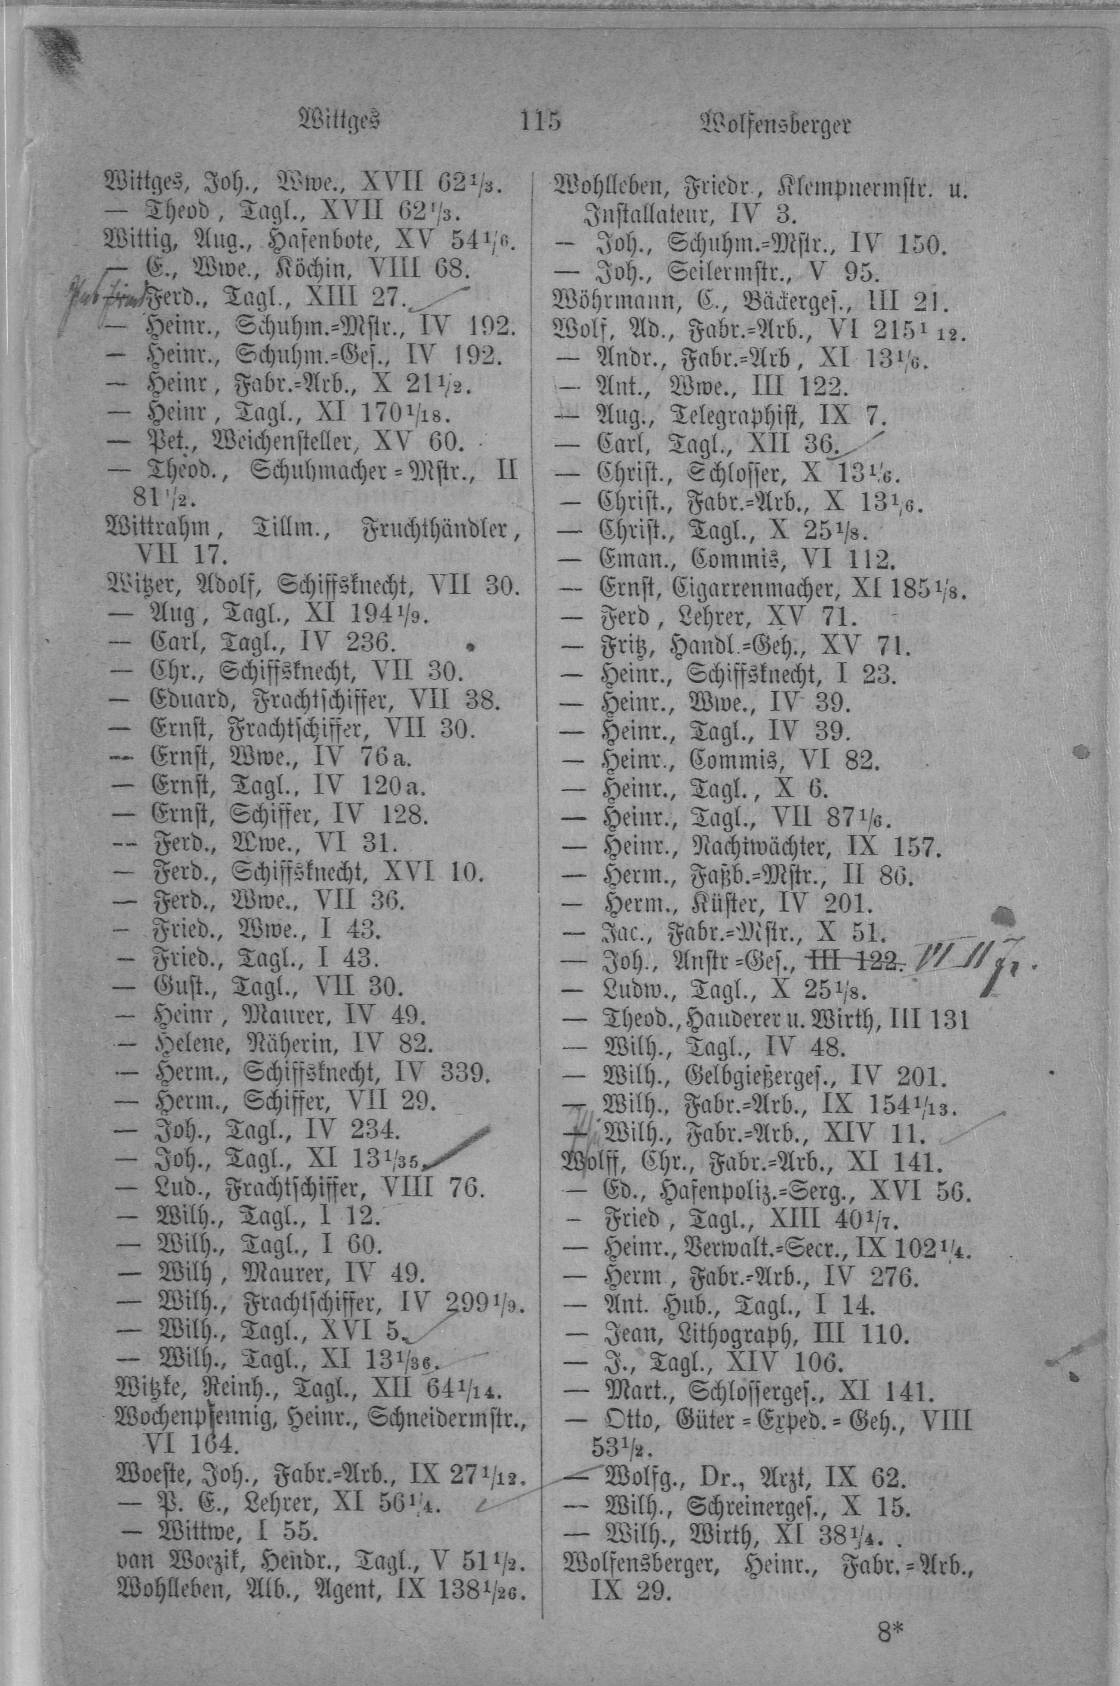 Wittges 115 Wolfensberger
Wittges, Joh., Wwe., XVII 62 1/3.
— Theod, Tagl., XVII 62 1/3.
Wittig, Aug., Hafenbote, XV 54 1/6.
— E., Wwe., Köchin, VIII 68.
Ferd., Tagl., XIII 27.
— Heinr., Schuhm.=Mstr., IV 192.
— Heinr., Schuhm.=Ges., IV 192.
— Heinr, Fabr.=Arb., X 21 1/2.
— Heinr, Tagl., XI 170 1/18.
— Pet., Weichensteller, XV 60.
— Theod., Schuhmacher=Mstr., II
81 1/2.
Wittrahm, Tillm., Fruchthändler,
VII 17.
Witzer, Adolf, Schiffsknecht, VII 30.
— Aug, Tagl., XI 194 1/9.
— Carl, Tagl., IV 236.
— Chr., Schiffsknecht, VII 30.
— Eduard, Frachtschiffer, VII 38.
— Ernst, Frachtschiffer, VII 30.
— Ernst, Wwe., IV 76a.
— Ernst, Tagl., IV 120a.
— Ernst, Schiffer, IV 128.
— Ferd., Wwe., VI 31.
— Ferd., Schiffsknecht, XVI 10.
— Ferd., Wwe., VII 36.
— Fried., Wwe., I 43.
— Fried., Tagl., I 43.
— Gust., Tagl., VII 30.
— Heinr, Maurer, IV 49.
— Helene, Näherin, IV 82.
— Herm., Schiffsknecht, IV 339.
— Herm., Schiffer, VII 29.
— Joh., Tagl., IV 234.
— Joh., Tagl., XI 13 1/35.
— Lud., Frachtschiffer, VIII 76.
— Wilh., Tagl., I 12.
— Wilh., Tagl., I 60.
— Wilh, Maurer, IV 49.
— Wilh., Frachtschiffer, IV 299 1/9.
— Wilh., Tagl., XVI 5.
— Wilh., Tagl., XI 13 1/36.
Witzke, Reinh., Tagl., XII 64 1/14.
Wochenpfennig, Heinr., Schneidermstr.,
VI 164.
Woeste, Joh., Fabr.=Arb., IX 27 1/12.
— P. E., Lehrer, XI 56 1/4.
— Wittwe, I 55.
van Woezik, Hendr., Tagl., V 51 1/2.
Wohlleben, Alb., Agent, IX 138 1/26.
Wohlleben, Friedr., Klempnermstr. u.
Installateur, IV 3.
— Joh., Schuhm.=Mstr., IV 150.
— Joh., Seilermstr., V 95.
Wöhrmann, C., Bäckerges., III 21.
Wolf, Ad., Fabr.=Arb., VI 215 1 12.
— Andr., Fabr.=Arb, XI 13 1/6.
— Ant., Wwe., III 122.
— Aug., Telegraphist, IX 7.
— Carl, Tagl., XII 36.
— Christ., Schlosser, X 13 1/6.
— Christ., Fabr.=Arb., X 13 1/6.
— Christ., Tagl., X 25 1/8.
— Eman., Commis, VI 112.
— Ernst, Cigarrenmacher, XI 185 1/8.
— Ferd, Lehrer, XV 71.
— Fritz, Handl.=Geh., XV 71.
— Heinr., Schiffsknecht, I 23.
— Heinr., Wwe., IV 39.
— Heinr., Tagl., IV 39.
— Heinr., Commis, VI 82.
— Heinr., Tagl., X 6.
— Heinr., Tagl., VII 87 1/6.
— Heinr., Nachtwächter, IX 157.
— Herm., Faßb.=Mstr., II 86.
— Herm., Küster, IV 201.
— Jac., Fabr.=Mstr., X 51.
— Joh., Anstr=Ges., III 122.
— Ludw., Tagl., X 25 1/8.
— Theod., Hauderer u. Wirth, III 131
— Wilh., Tagl., IV 48.
— Wilh., Gelbgießerges., IV 201.
— Wilh., Fabr.=Arb., IX 154 1/13.
— Wilh., Fabr.=Arb., XIV 11.
Wolff, Chr., Fabr.=Arb., XI 141.
— Ed., Hafenpoliz.=Serg., XVI 56.
— Fried, Tagl., XIII 40 1/7.
— Heinr., Verwalt.=Secr., IX 102 1/4.
— Herm, Fabr.=Arb., IV 276.
— Ant. Hub., Tagl., I 14.
— Jean, Lithograph, III 110.
— J., Tagl., XIV 106.
— Mart., Schlosserges., XI 141.
— Otto, Güter=Exped.=Geh., VIII
53 1/2.
— Wolfg., Dr., Arzt, IX 62.
— Wilh., Schreinerges., X 15.
— Wilh., Wirth, XI 38 1/4.
Wolfensberger, Heinr., Fabr.=Arb.,
IX 29.
8*